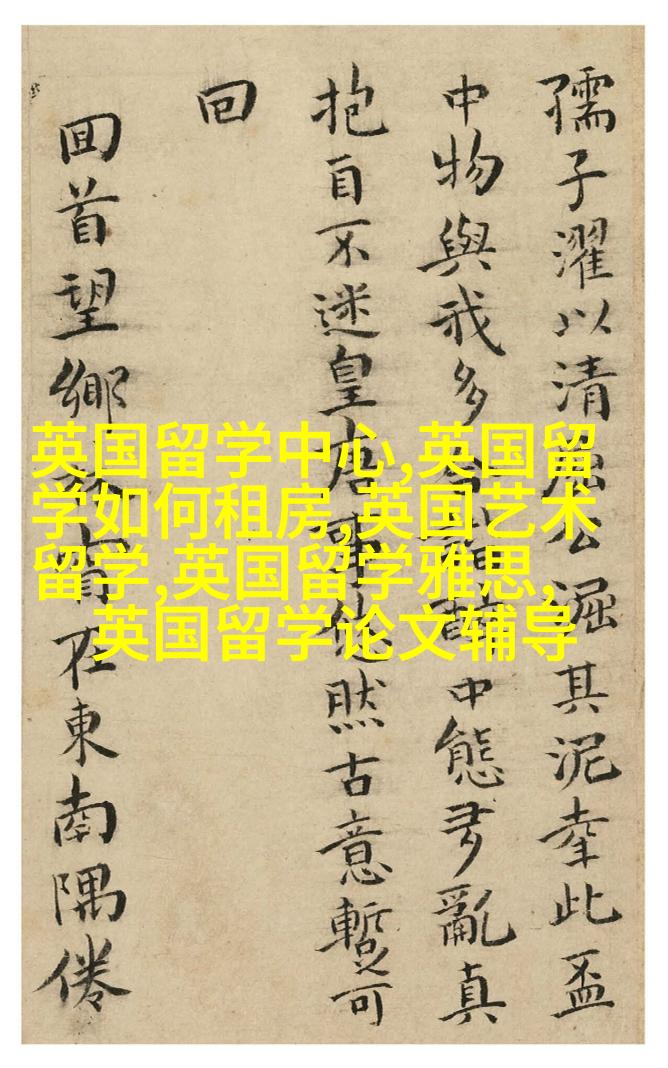 孺子濯以清屈公淈其泥幸此盃
中物與我多醉中態多亂真
抱自不迷皇唐然古意暫可
回
回首望鄉在東南隅倦
英国留学中心,英国留
学如何租房,英国艺术
留学,英国留学雅思,
英国留学论文辅导